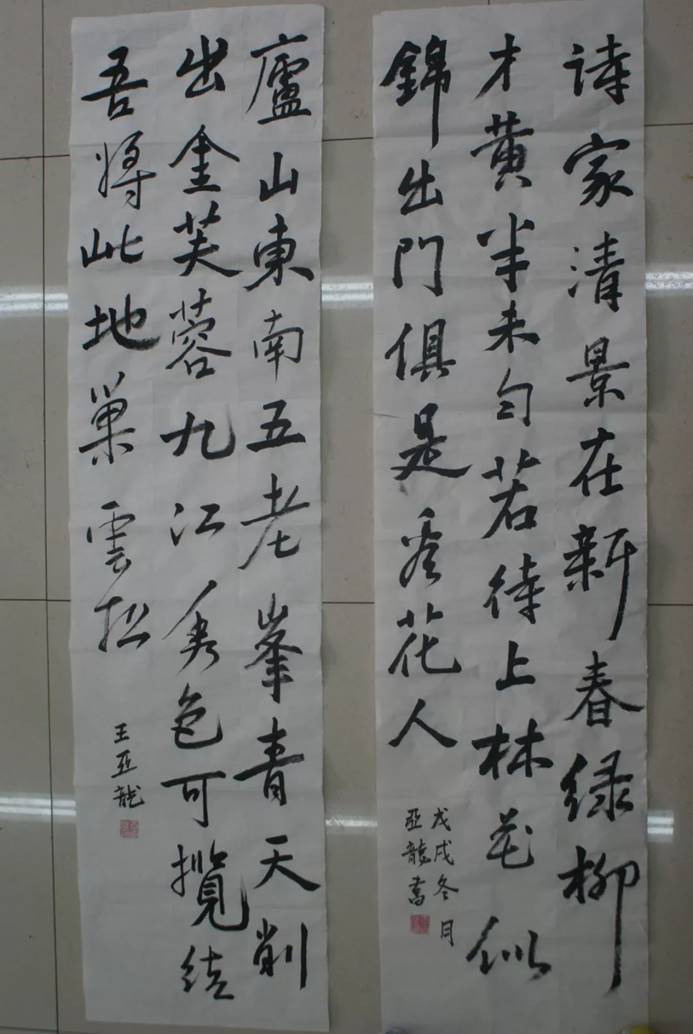 詩家清景在新春綠柳
才黄半未匀若待上林花似
錦出門俱是看花人
戊戌冬月
亞龍書
廬山東南五老峯青天削
出金芙蓉九江秀色可攬結
吾將此地巢雲松
王亚龍